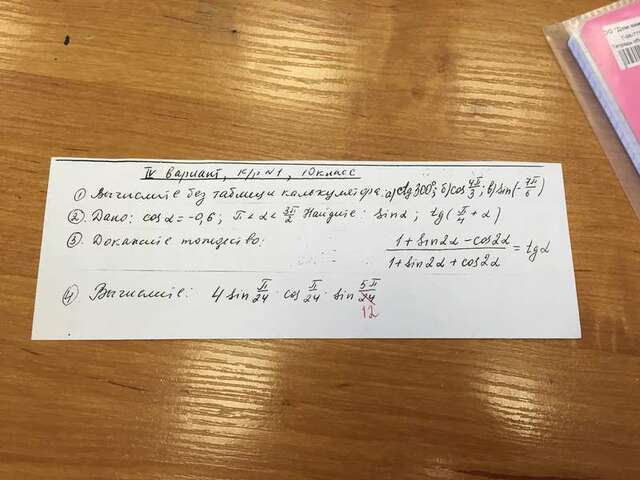 IV вариант, к/р №1, 10 класс
① Вычислите без таблиц и калькулятора: а) ctg 300°; б) cos 4π/3; в) sin(-7π/6)
② Дано: cos α = -0,6; π < α < 3π/2 Найдите: sin α; tg(π/4 + α)
③ Докажите тождество: (1 + sin 2α - cos 2α)/(1 + sin 2α + cos 2α) = tg α
④ Вычислите: 4 sin π/24 · cos π/24 · sin 5π/24
12